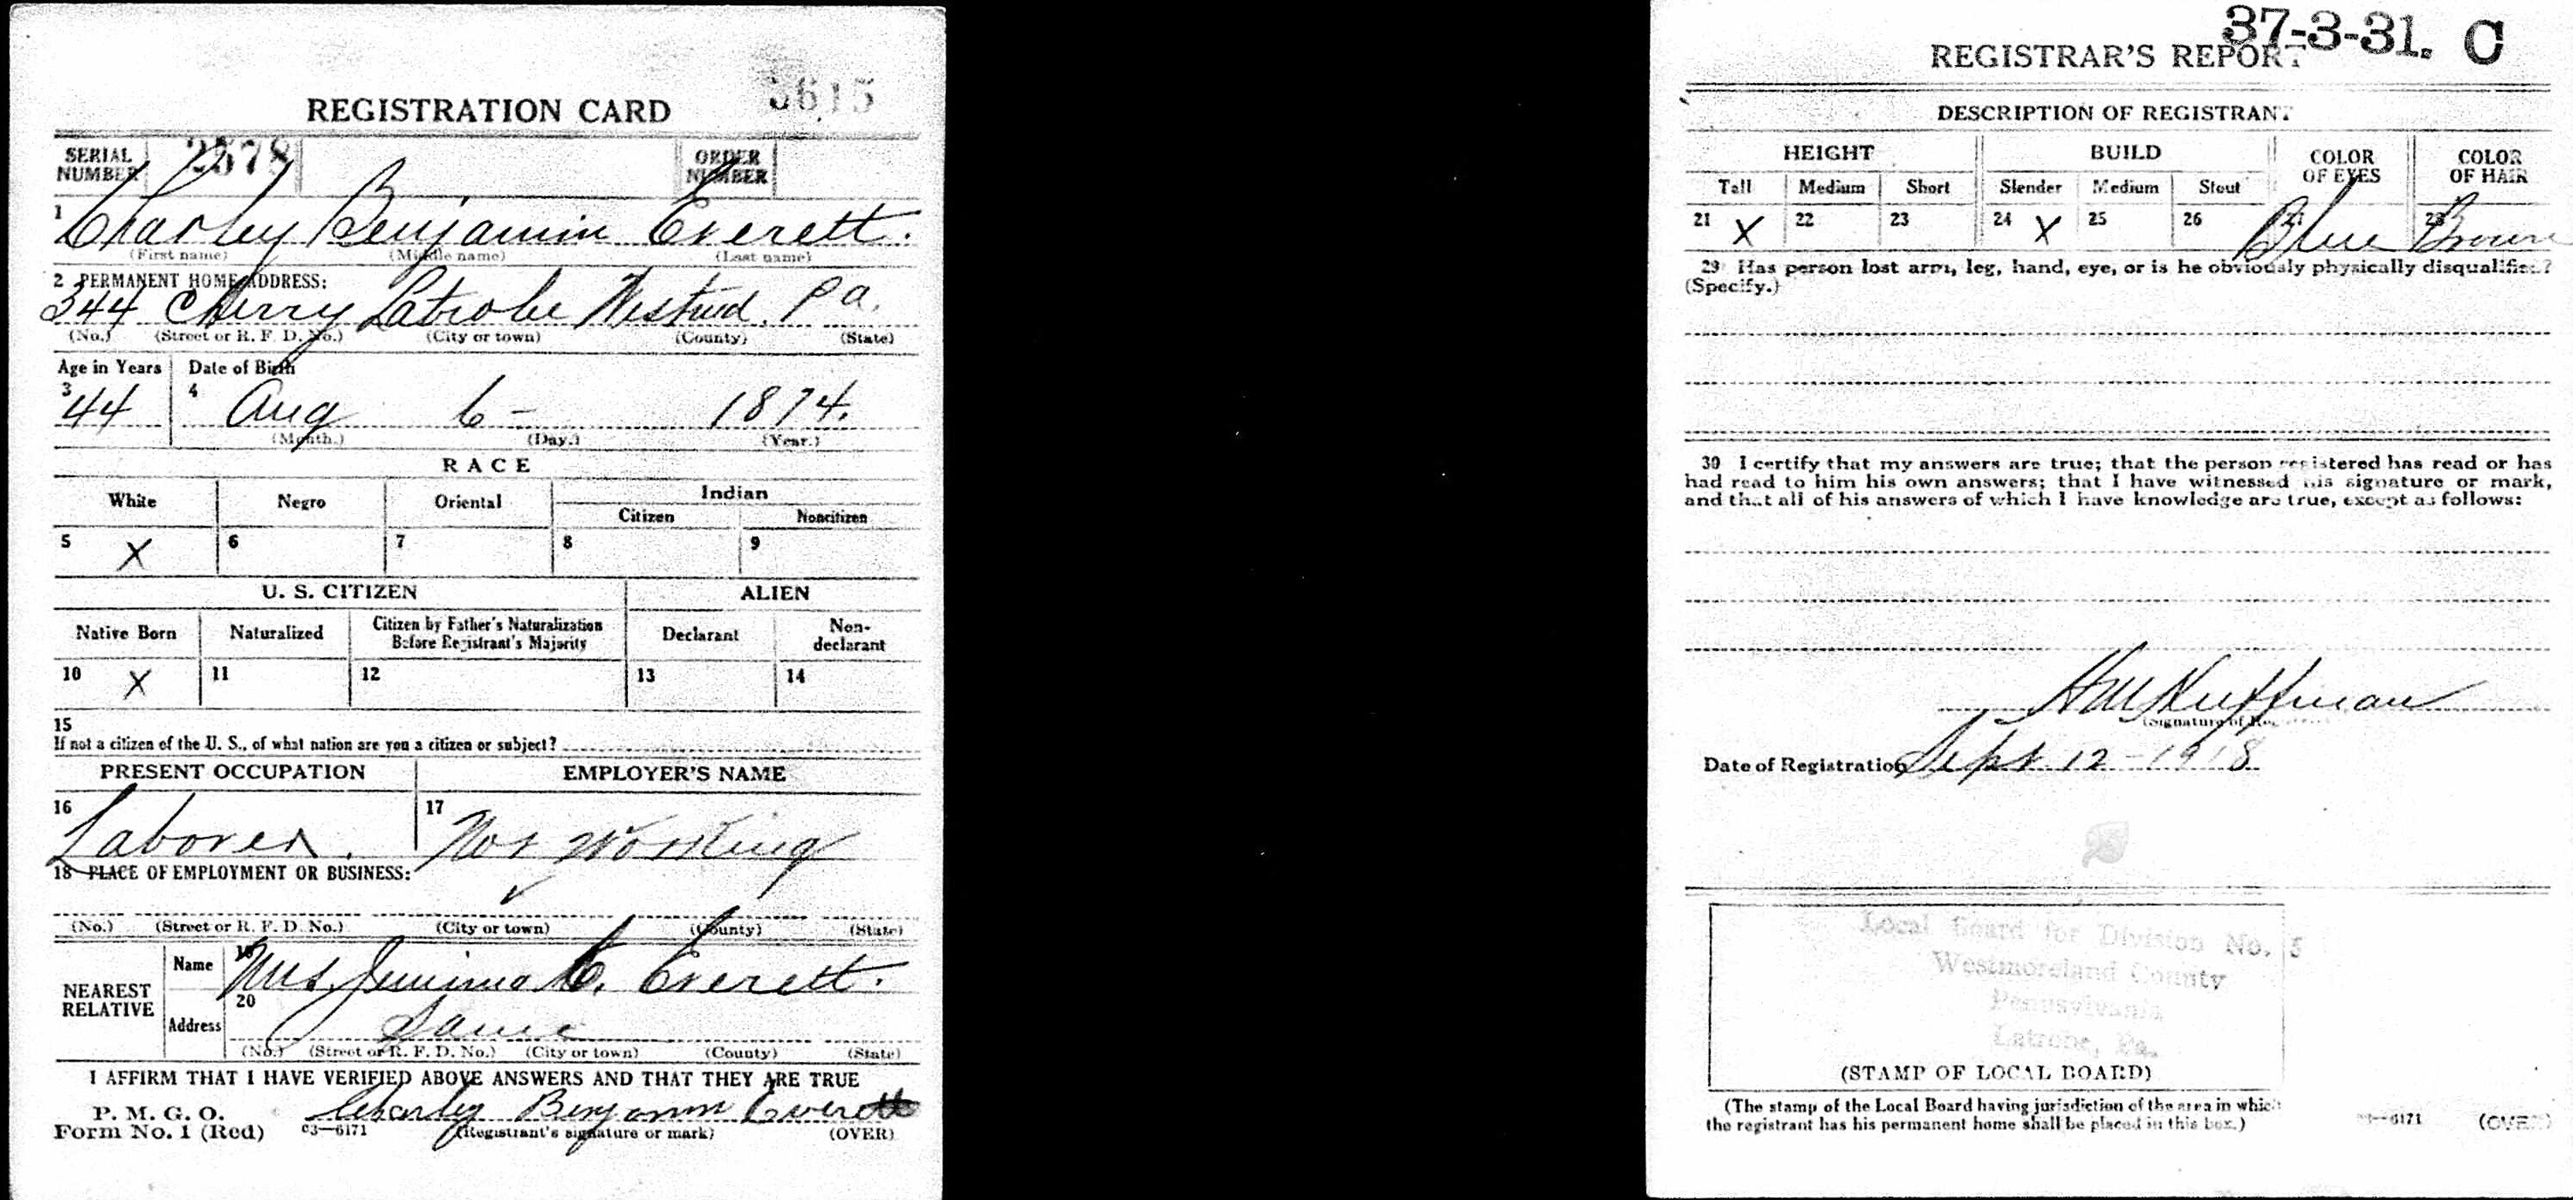 3615
REGISTRATION CARD
SERIAL NUMBER 2578 ORDER NUMBER
1 Charley Benjamin Everett.
(First name) (Middle name) (Last name)
2 PERMANENT HOME ADDRESS:
344 Cherry Latrobe Westmd. Pa.
(No.) (Street or R. F. D. No.) (City or town) (County) (State)
Age in Years Date of Birth
3 44 4 Aug 6 - 1874.
(Month.) (Day.) (Year.)
RACE
White Negro Oriental Indian
Citizen Noncitizen
5 X 6 7 8 9
U. S. CITIZEN ALIEN
Native Born Naturalized Citizen by Father's Naturalization Before Registrant's Majority Declarant Non-declarant
10 X 11 12 13 14
15
If not a citizen of the U. S., of what nation are you a citizen or subject?
PRESENT OCCUPATION EMPLOYER'S NAME
16 Laborer. 17 Not Working
18 PLACE OF EMPLOYMENT OR BUSINESS:
(No.) (Street or R. F. D. No.) (City or town) (County) (State)
NEAREST RELATIVE Name 19 Mrs. Jemima C. Everett.
Address 20 Same
(No.) (Street or R. F. D. No.) (City or town) (County) (State)
I AFFIRM THAT I HAVE VERIFIED ABOVE ANSWERS AND THAT THEY ARE TRUE
P. M. G. O.
Form No. 1 (Red) 03—6171 Charley Benjamin Everett
(Registrant's signature or mark) (OVER)
37-3-31. C
REGISTRAR'S REPORT
DESCRIPTION OF REGISTRANT
HEIGHT BUILD COLOR OF EYES COLOR OF HAIR
Tall Medium Short Slender Medium Stout
21 X 22 23 24 X 25 26 27 Blue 28 Brown
29 Has person lost arm, leg, hand, eye, or is he obviously physically disqualified?
(Specify.)
30 I certify that my answers are true; that the person registered has read or has
had read to him his own answers; that I have witnessed his signature or mark,
and that all of his answers of which I have knowledge are true, except as follows:
HM Huffman
(Signature of Registrar)
Date of Registration Sept 12 - 1918
Local Board for Division No. 5
Westmoreland County
Pennsylvania
Latrobe, Pa.
(STAMP OF LOCAL BOARD)
(The stamp of the Local Board having jurisdiction of the area in which
the registrant has his permanent home shall be placed in this box.)
03—6171 (OVER)